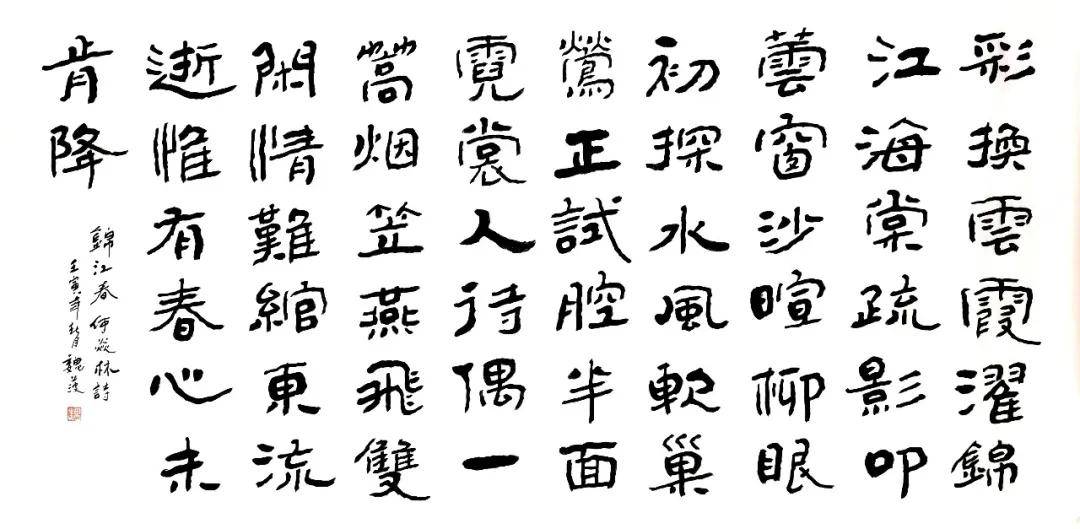 彩換雲霞濯錦
江海棠疏影叩
蕓窗沙暄柳眼
初探水風軟巢
鶯正試腔半面
霓裳人待偶一
篙烟笠燕飛雙
閑情難綰東流
逝惟有春心未
肯降
錦江春 何焱林詩
壬寅年秋月 魏